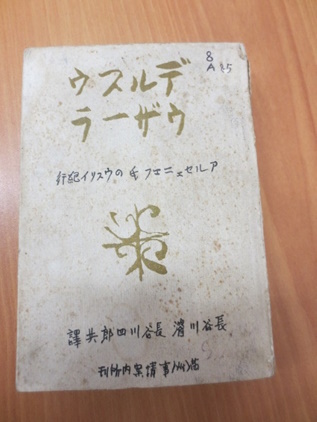 8
デルスウ
ウザーラ
アルセニエフ氏のウスリイ紀行
長谷川濬 長谷川四郎共譯
満洲事情案内所刊